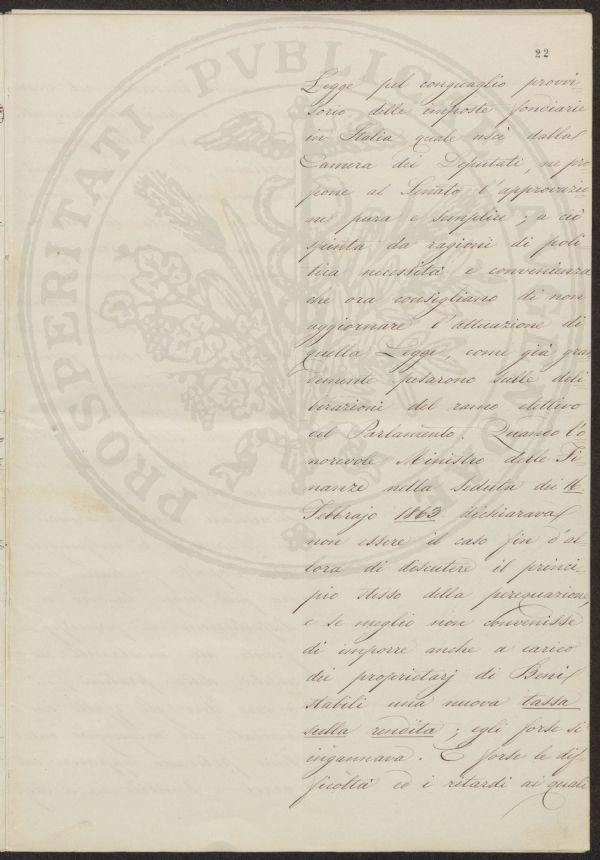 22
PROSPERITATI PVBLICAE AVGENDAE
Legge pel conguaglio provvi-
sorio delle imposte fondiarie
in Italia quale uscì dalla
Camera dei Deputati, ne pro
pone al Senato l'approvazio
ne pura e semplice; a ciò
spinta da ragioni di poli
tica necessità e convenienza
che ora consigliano di non
aggiornare l'attuazione di
quella Legge, come già gran
demente pesarono sulle deli
berazioni del ramo elettivo
del Parlamento. Quando l'o
norevole Ministro delle Fi-
nanze nella seduta dei
Febbrajo 1863 dichiarava
non essere il caso fin d'al
lora di discutere il princi-
pio stesso della perequazione,
e se meglio non convenisse
di imporre anche a carico
dei proprietarj di Beni
stabili una nuova tassa
sulla rendita; egli forse si
ingannava. E forse le dif-
ficoltà ed i ritardi ai quali